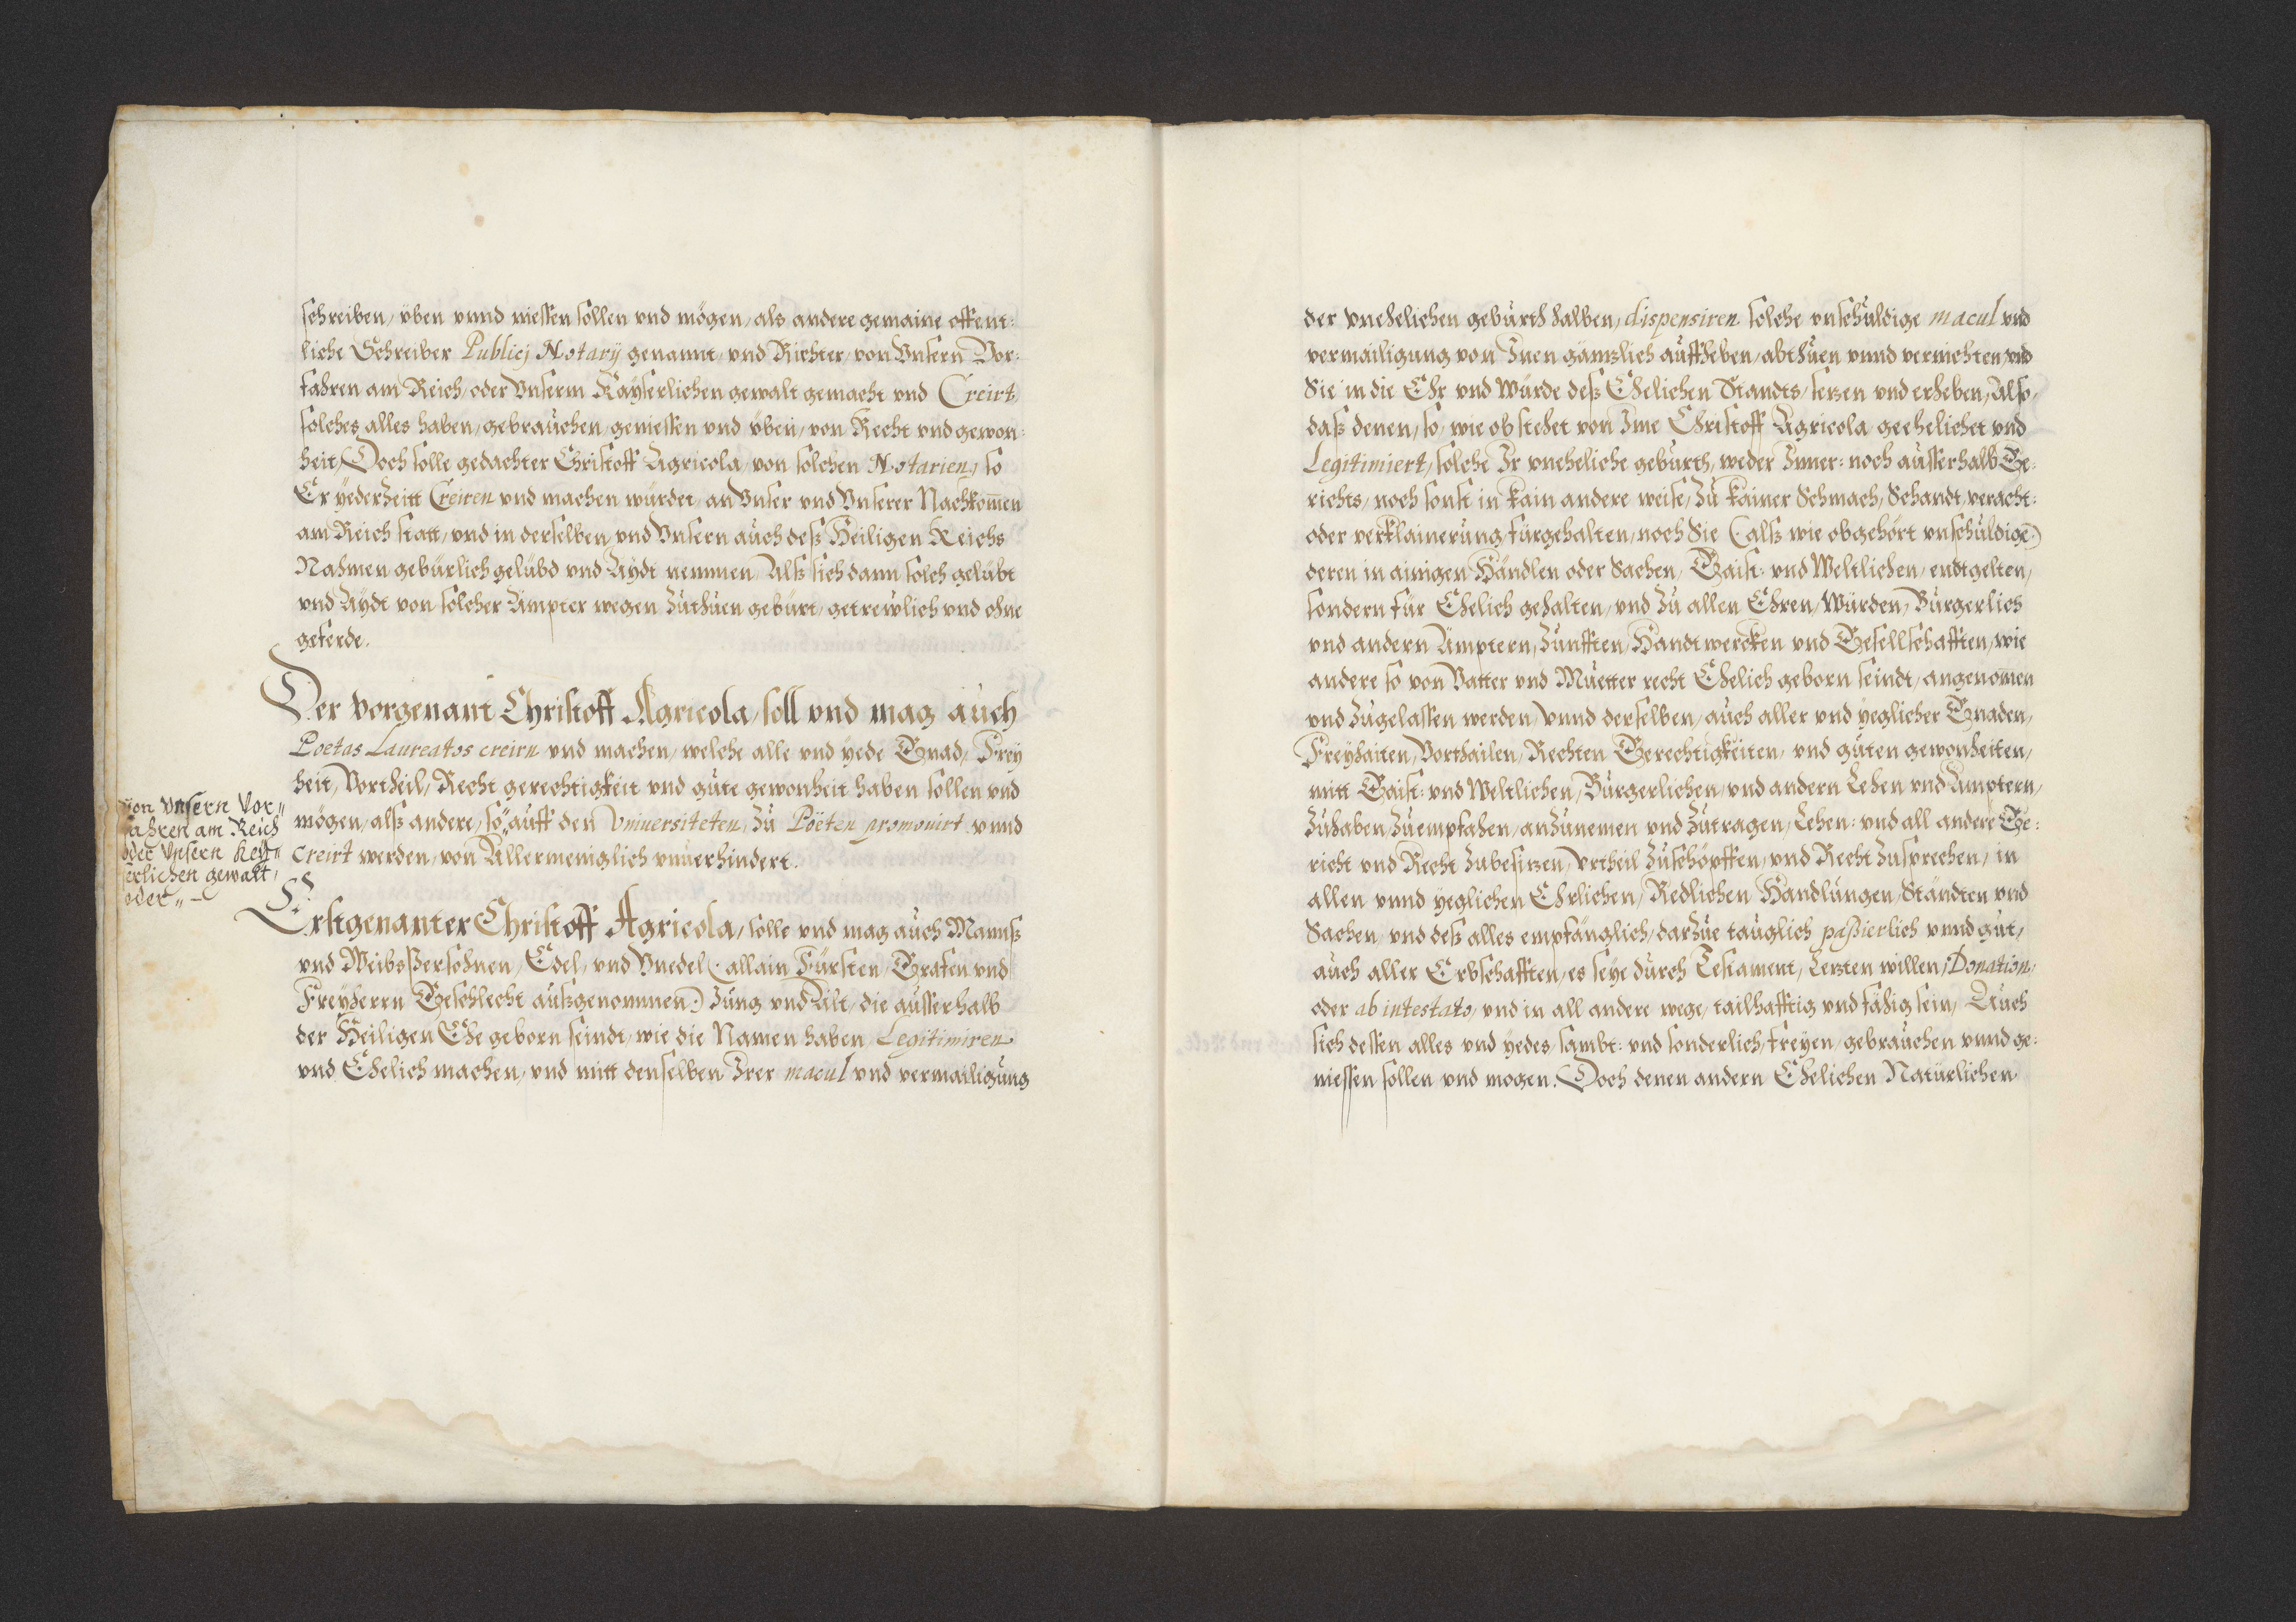 schreiben, üben vnnd niessen sollen vnd mögen, als andere gemaine offent:
liche Schreiber Publicj Notarij genannt, vnd Richter, von Vnsern Vor:
fahren am Reich, oder Vnserm Kayserlichen gewalt gemacht vnd Creirt,
solches alles haben, gebrauchen, geniessen vnd üben, von Recht vnd gewon:
heit, Doch solle gedachter Christoff Agricola, von solchen Notarien, so
Er yederzeitt Creiren vnd machen würdet, an Vnser vnd Vnserer Nachkom̄en
am Reich statt, vnd in derselben, vnd Vnsern auch deß Heiligen Reichs
Nahmen gebürlich gelübd vnd Aÿdt nemmen, Alß sich dann solch gelübt
vnd Aÿdt von solcher Ämpter wegen zuthuen gebürt, getrewlich vnd ohne
geferde.
Der vorgenant Christoff Agricola, soll vnd mag auch
Poetas Laureatos creirn vnd machen, welche alle vnd yede Gnad, Frey
heit, Vortheil, Recht gerechtigkeit vnd gute gewonheit haben sollen vnd
mögen, alß andere, so„ auff den Vniuersiteten, zu Poëten promouirt vnnd
creirt werden, von Allermeniglich vnuerhindert.
von Vnsern Vor„
fahren am Reich
oder Vnsern Key„
serlichen gewalt,
oder„ –
Erstgenanter Christoff Agricola, solle vnd mag auch Mannß
vnd Weibs Persohnen, Edel, vnd Vnedel (allain Fürsten, Grafen vnd
Freyherrn Geschlecht außgenommen) Jung vnd Alt, die ausserhalb
der Heiligen Ehe geborn seindt, wie die Namen haben, Legitimiren
vnd Ehelich machen, vnd mitt denselben Irer macul vnd vermailigung
der vnehelichen geburth halben, dispensiren solche vnschuldige macul vnd
vermailigung von Inen gänzlich auffheben, abthuen vnnd vernichten, vnd
Sie in die Ehr vnd Würde deß Ehelichen Standts, setzen vnd erheben, Also,
daß denen, so, wie obstehet von Ime Christoff Agricola geehelichet vnd
Legitimiert, solche Ir vneheliche geburth, weder Inner: noch ausserhalb Ge:
richts, noch sonst in kain andere weise, zu kainer Schmach, Schandt, veracht:
oder verklainerung fürgehalten, noch Sie (alß wie obgehört vnschuldige)
deren in ainigen Händlen oder Sachen, Gaist: vnd Weltlichen, endtgelten,
sondern für Ehelich gehalten, vnd zu allen Ehren, Würden, Burgerlich
vnd andern Ämptern, Zunfften, Handtwercken vnd Gesellschafften, wie
andere so von Vatter vnd Muetter recht Ehelich geborn seindt, angenom̄en
vnd zugelassen werden, Vnnd derselben, auch aller vnd yeglicher Gnaden,
Freyhaiten, Vorthailen, Rechten Gerechtigkeiten, vnd guten gewonheiten,
mitt Gaist: vnd Weltlichen, Burgerlichen, vnd andern Lehen vnd Ämptern,
zuhaben, zuempfahen, anzunemen vnd zutragen, Lehen: vnd all andere Ge:
richt vnd Recht zubesitzen, Vrtheil zuschöpffen, vnd Recht zusprechen, in
allen vnnd yeglichen Ehrlichen, Redlichen Handlungen, Ständten vnd
Sachen, vnd deß alles empfänglich, darzue tauglich passierlich vnnd gut,
auch aller Erbschafften, es seye durch Testament, Letzten willen, Donation,
oder ab intestato, vnd in all andere wege, tailhafftig vnd fähig sein, Auch
sich dessen alles vnd yedes, sambt: vnd sonderlich, freyen, gebrauchen vnnd ge:
niessen sollen vnd mogen. Doch denen andern Ehelichen Natürlichen